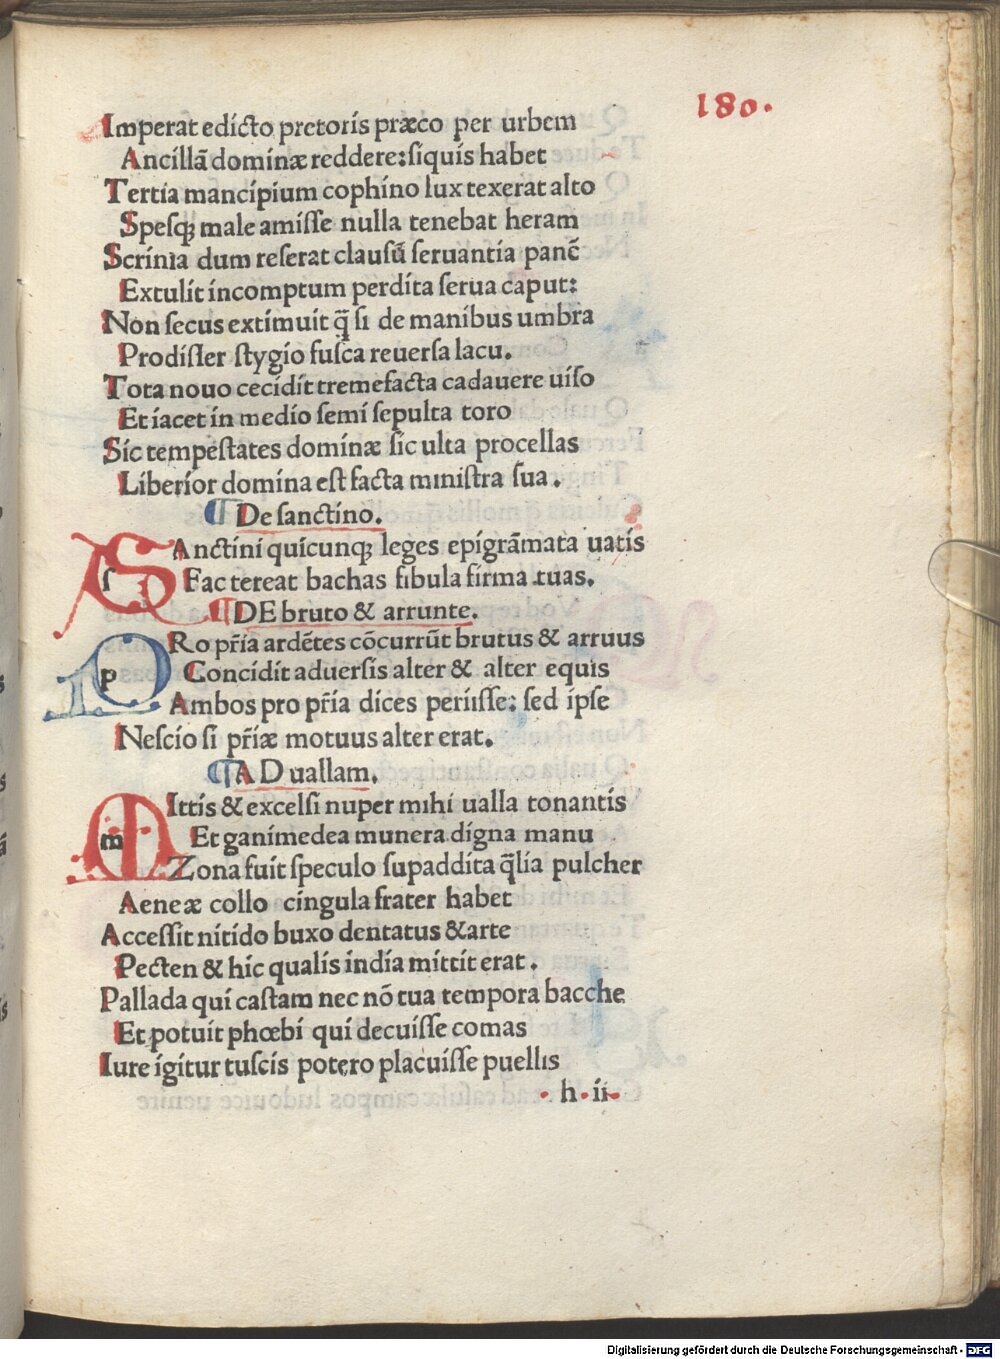 180.
Imperat edicto pretoris præco per urbem
Ancillā dominæ reddere: siquis habet
Tertia mancipium cophino lux texerat alto
Spesqȝ male amisse nulla tenebat heram
Scrinia dum reserat clausū seruantia panē
Extulit incomptum perdita serua caput:
Non secus extimuit q̄ si de manibus umbra
Prodisset stygio fusca reuersa lacu.
Tota nouo cecidit tremefacta cadauere uiso
Et iacet in medio semi sepulta toro
Sic tempestates dominæ sic ulta procellas
Liberior domina est facta ministra sua.
¶ De sanctino.
SAnctini quicunqȝ leges epigrāmata uatis
Fac tereat bachas fibula firma tuas.
¶ DE bruto & arrunte.
PRo pr̄ia ardētes cōcurrūt brutus & arruus
Concidit aduersis alter & alter equis
Ambos pro pr̄ia dices periisse: sed ipse
Nescio si pr̄iæ motuus alter erat.
¶ AD uallam.
MIttis & excelsi nuper mihi ualla tonantis
Et ganimedea munera digna manu
Zona fuit speculo supaddita q̄lia pulcher
Aeneæ collo cingula frater habet
Accessit nitido buxo dentatus & arte
Pecten & hic qualis india mittit erat.
Pallada qui castam nec nō tua tempora bacche
Et potuit phœbi qui decuisse comas
Iure igitur tuscis potero placuisse puellis
. h . ii .
Digitalisierung gefördert durch die Deutsche Forschungsgemeinschaft - DFG